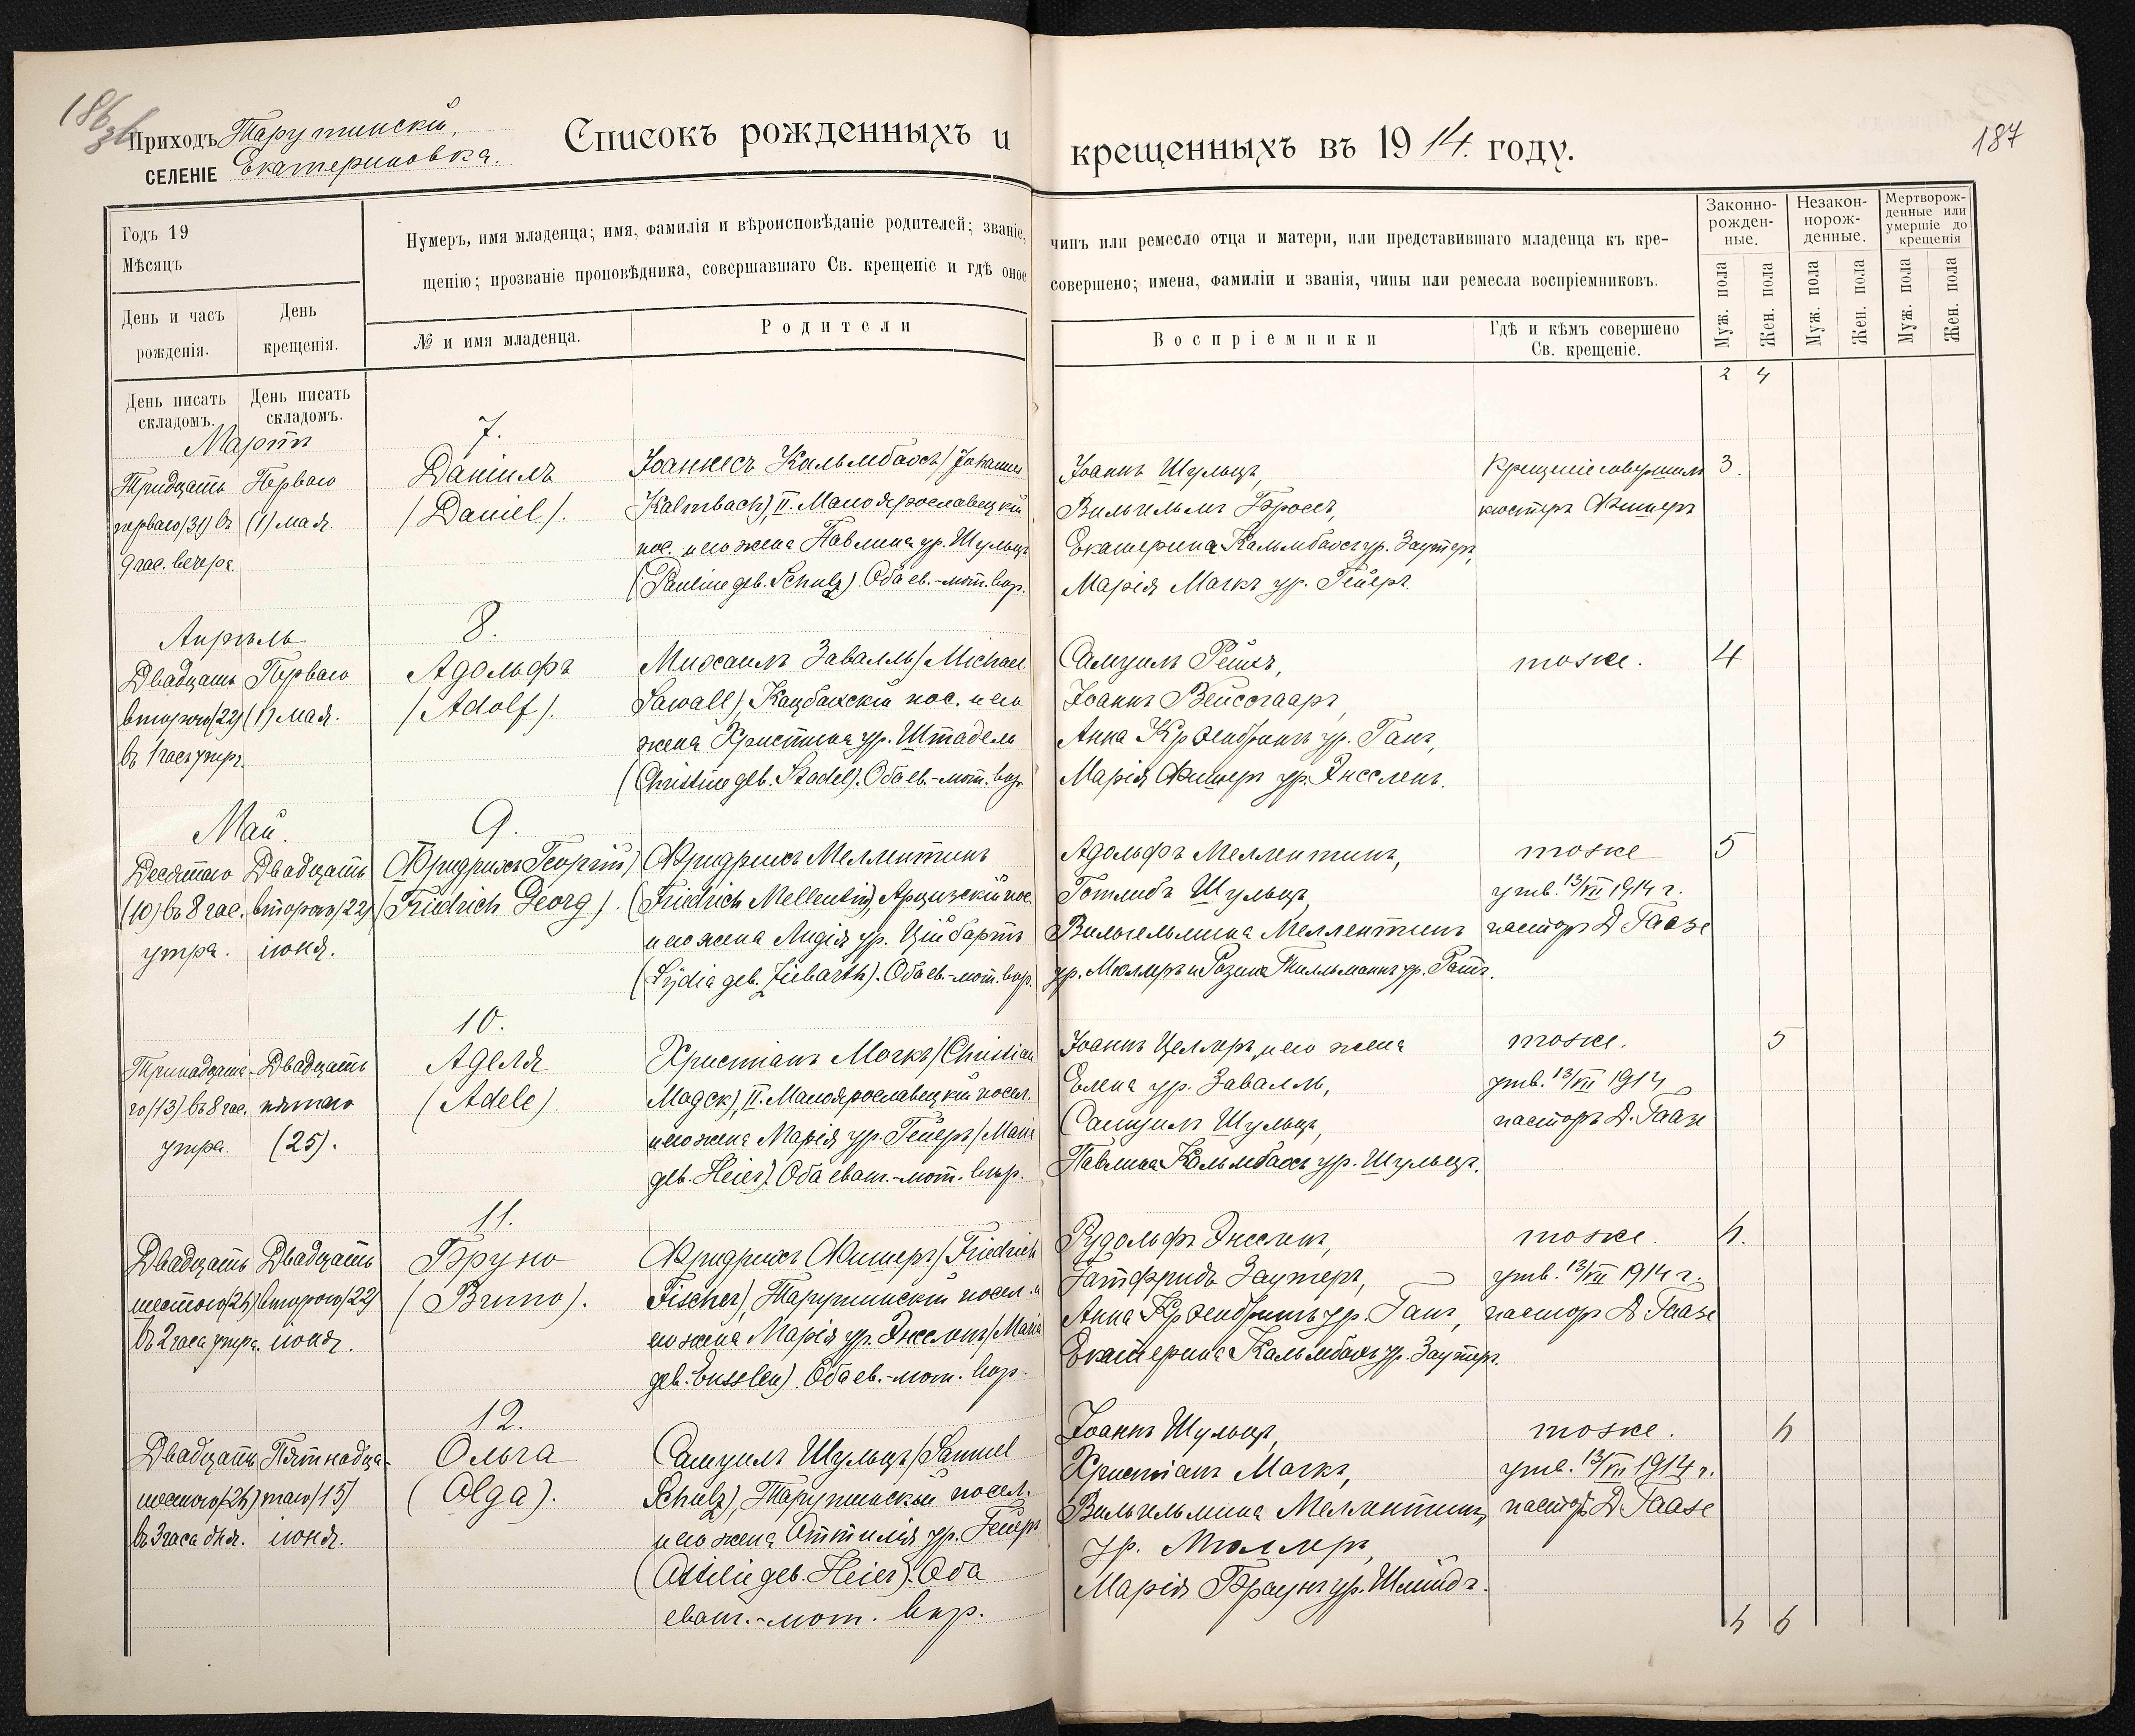 186
187
Приходъ Тарутинскій,
СЕЛЕНІЕ Екатериновка.
Списокъ рожденныхъ и крещенныхъ въ 1914. году.
Годъ 19
Мѣсяцъ
День и часъ рожденія.
День крещенія.
День писать складомъ.
День писать складомъ.
Нумеръ, имя младенца; имя, фамилія и вѣроисповѣданіе родителей; званіе, чинъ или ремесло отца и матери, или представившаго младенца къ кре-
щенію; прозваніе проповѣдника, совершавшаго Св. крещеніе и гдѣ оное совершено; имена, фамиліи и званія, чины или ремесла воспріемниковъ.
№ и имя младенца.
Родители
Воспріемники
Гдѣ и кѣмъ совершено Св. крещеніе.
Законно-рожден-ные.
Незакон-норож-денные.
Мертворож-денные или умершіе до крещенія
Муж. пола
Жен. пола
Муж. пола
Жен. пола
Муж. пола
Жен. пола
2 4
Мартъ
7.
Тридцать
перваго (31) въ
9 час. вечера.
Перваго
(1) мая.
Даніилъ
(Daniel).
Іоаннесъ Кальмбахъ (Johannes
Kalmbach), II. Малоярославецкій
пос. и его жена Павлина ур. Шульцъ
(Pauline geb. Schulz). Оба ев.-лют. вѣр.
Іоаннъ Шульцъ,
Вильгельмъ Броссъ,
Екатерина Кальмбахъ ур. Заутеръ,
Марія Маккъ ур. Гейеръ.
Крещеніе совершилъ
кюстеръ Фишеръ
3.
Апрѣль
8.
Двадцать
второго (22)
въ 1 часъ утра.
Перваго
(1) мая.
Адольфъ
(Adolf).
Михаилъ Заваллъ (Michael
Sawall), Кацбахскій пос. и его
жена Христина ур. Штадель
(Christine geb. Stadel). Оба ев.-лют. вѣр.
Самуилъ Рейхъ,
Іоаннъ Вейсгааръ,
Марія Фишеръ ур. Энсслень.
тоже.
4
Май.
9.
Десятаго
(10) въ 8 час.
утра.
Двадцать
второго (22)
іюня.
Фридрихъ Георгій
(Friedrich Georg).
Фридрихъ Меллентинъ
(Friedrich Mellentin), Арцизскій пос.
и его жена Лидія ур. Цибартъ
(Lydia geb. Ziebarth). Оба ев.-лют. вѣр.
Адольфъ Меллентинъ,
Готлибъ Шульцъ,
Вильгельмина Меллентинъ
ур. Мюллеръ и Розина Тилльманнъ ур.
тоже
утв. 13/VII 1914 г.
пасторъ Д Гаазе
5
10.
Тринадцата-
го (13) въ 8 час.
утра.
Двадцать
пятаго
(25).
Аделя
(Adele).
Христіанъ Маккъ (Christian
Mack), II. Малоярославецкій посел.
и его жена Марія ур. Гейеръ (Maria
geb. Heier). Оба еванг.-лют. вѣр.
Іоаннъ Целлеръ, и его жена
Елена ур. Заваллъ,
Самуилъ Шульцъ,
Павлина Кальмбахъ ур. Шульцъ.
тоже.
утв. 13/VII 1914
пасторъ Д. Гаазе
5
11.
Двадцать
шестого (26)
въ 2 часа утра.
Двадцать
второго (22)
іюня.
Бруно
(Bruno).
Фридрихъ Фишеръ (Friedrich
Fischer), Тарутинскій посел. и
его жена Марія ур. Энслень (Maria
geb. Ensslen). Оба ев.-лют. вѣр.
Рудольфъ Энсслень,
Гатфридъ Заутеръ,
Екатерина Кальмбахъ ур. Заутеръ.
тоже.
утв. 13/VII 1914 г.
пасторъ Д Гаазе
6.
12.
Двадцать
шестого (26)
въ 3 часа дня.
Пятнадца-
таго (15)
іюня.
Ольга
(Olga).
Самуилъ Шульцъ (Samuel
Schulz), Тарутинскій посел.
и его жена Оттилія ур. Гейеръ
(Ottilie geb. Heier). Оба
еванг.-лют. вѣр.
Іоаннъ Шульцъ,
Христіанъ Маккъ,
Вильгельмина Меллентинъ,
ур. Мюллеръ,
Марія Браунъ ур. Шмидъ.
тоже.
утв. 13/VII 1914 г.
пасторъ Д. Гаазе
6
6 6